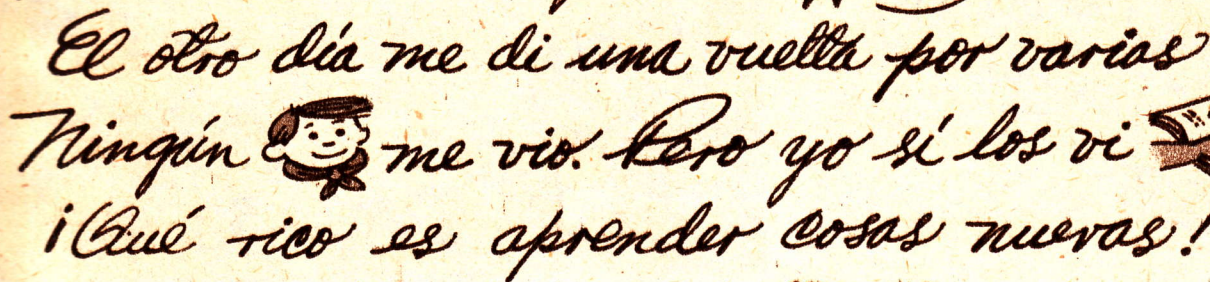 El otro día me di una vuelta por varias
Ningún me vio. Pero yo sí los vi
¡Qué rico es aprender cosas nuevas!